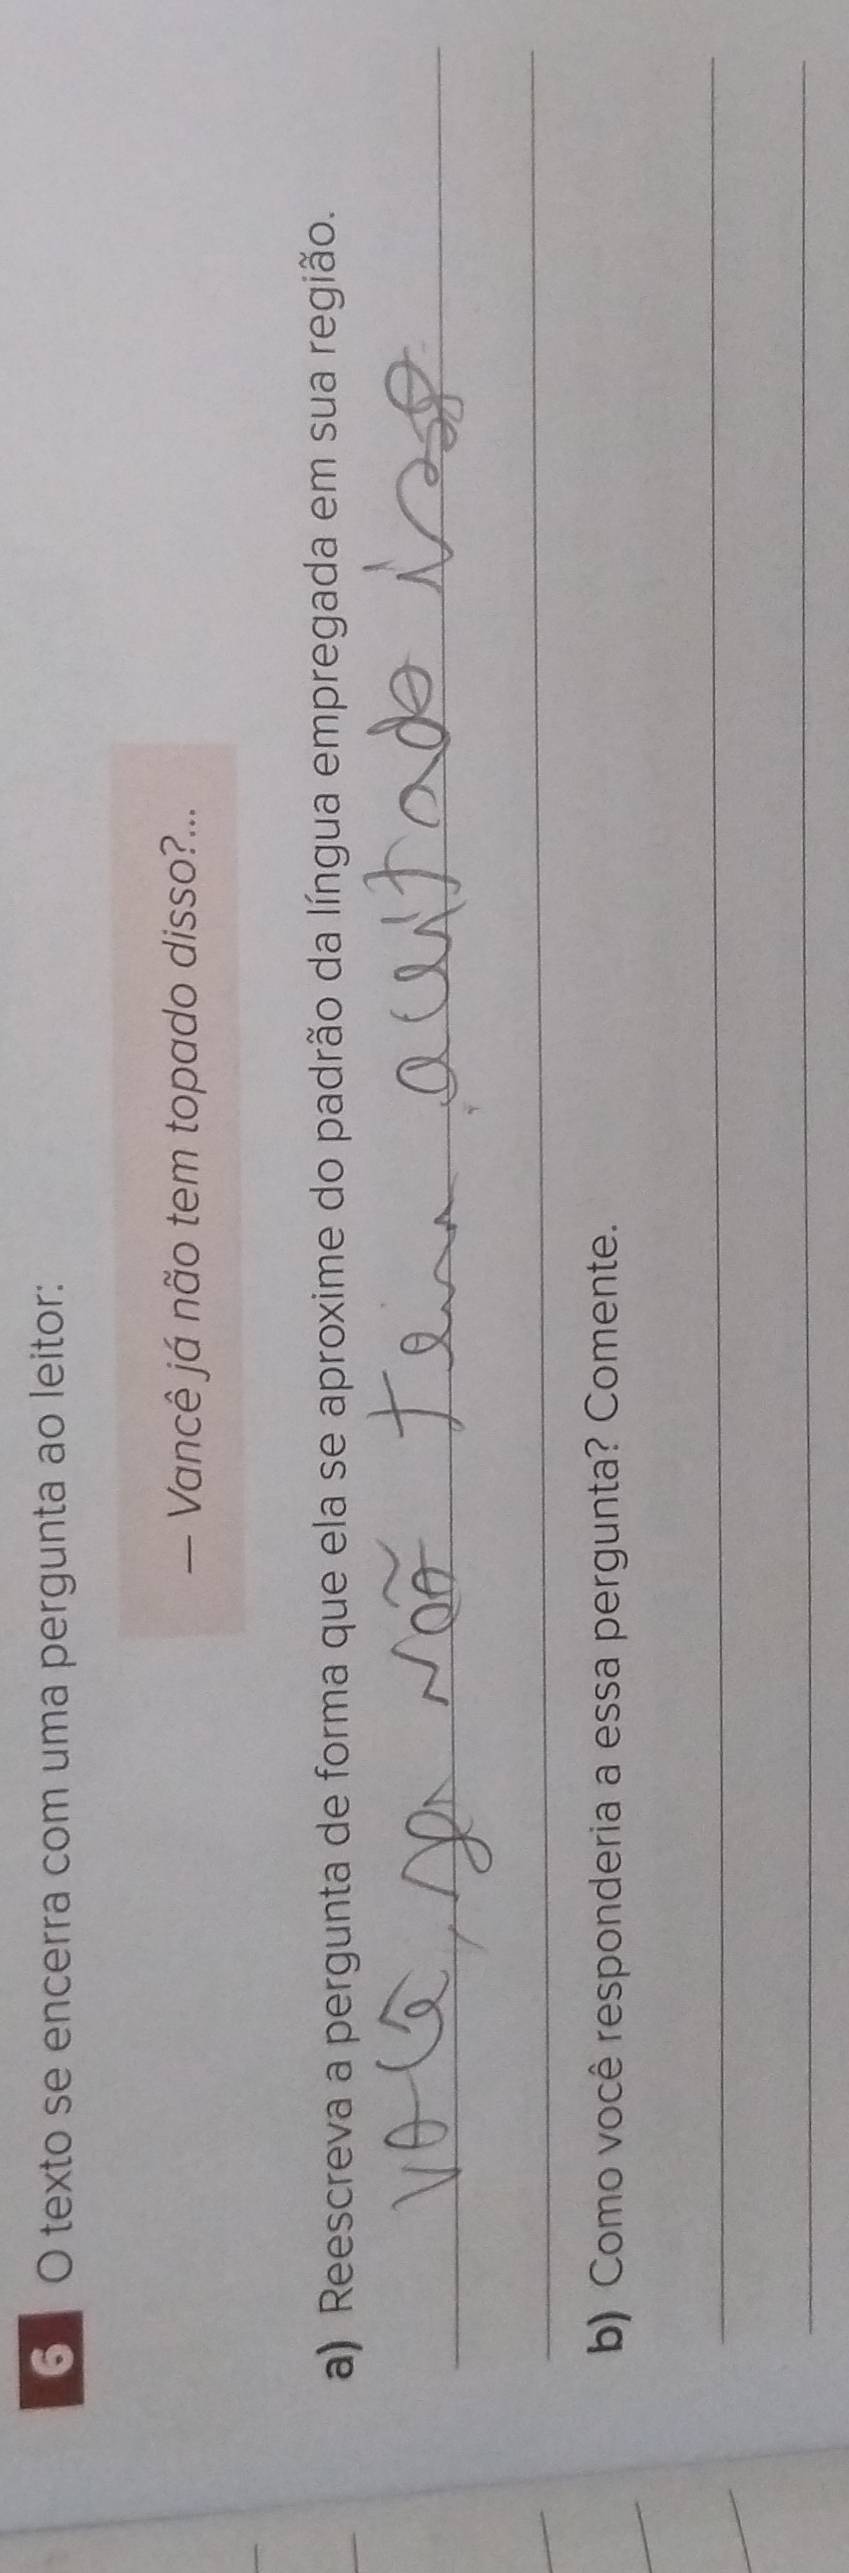 6 O texto se encerra com uma pergunta ao leitor:
— Vancê já não tem topado disso?...
a) Reescreva a pergunta de forma que ela se aproxime do padrão da língua empregada em sua região.
Você, já não tem aceitado isso
b) Como você responderia a essa pergunta? Comente.